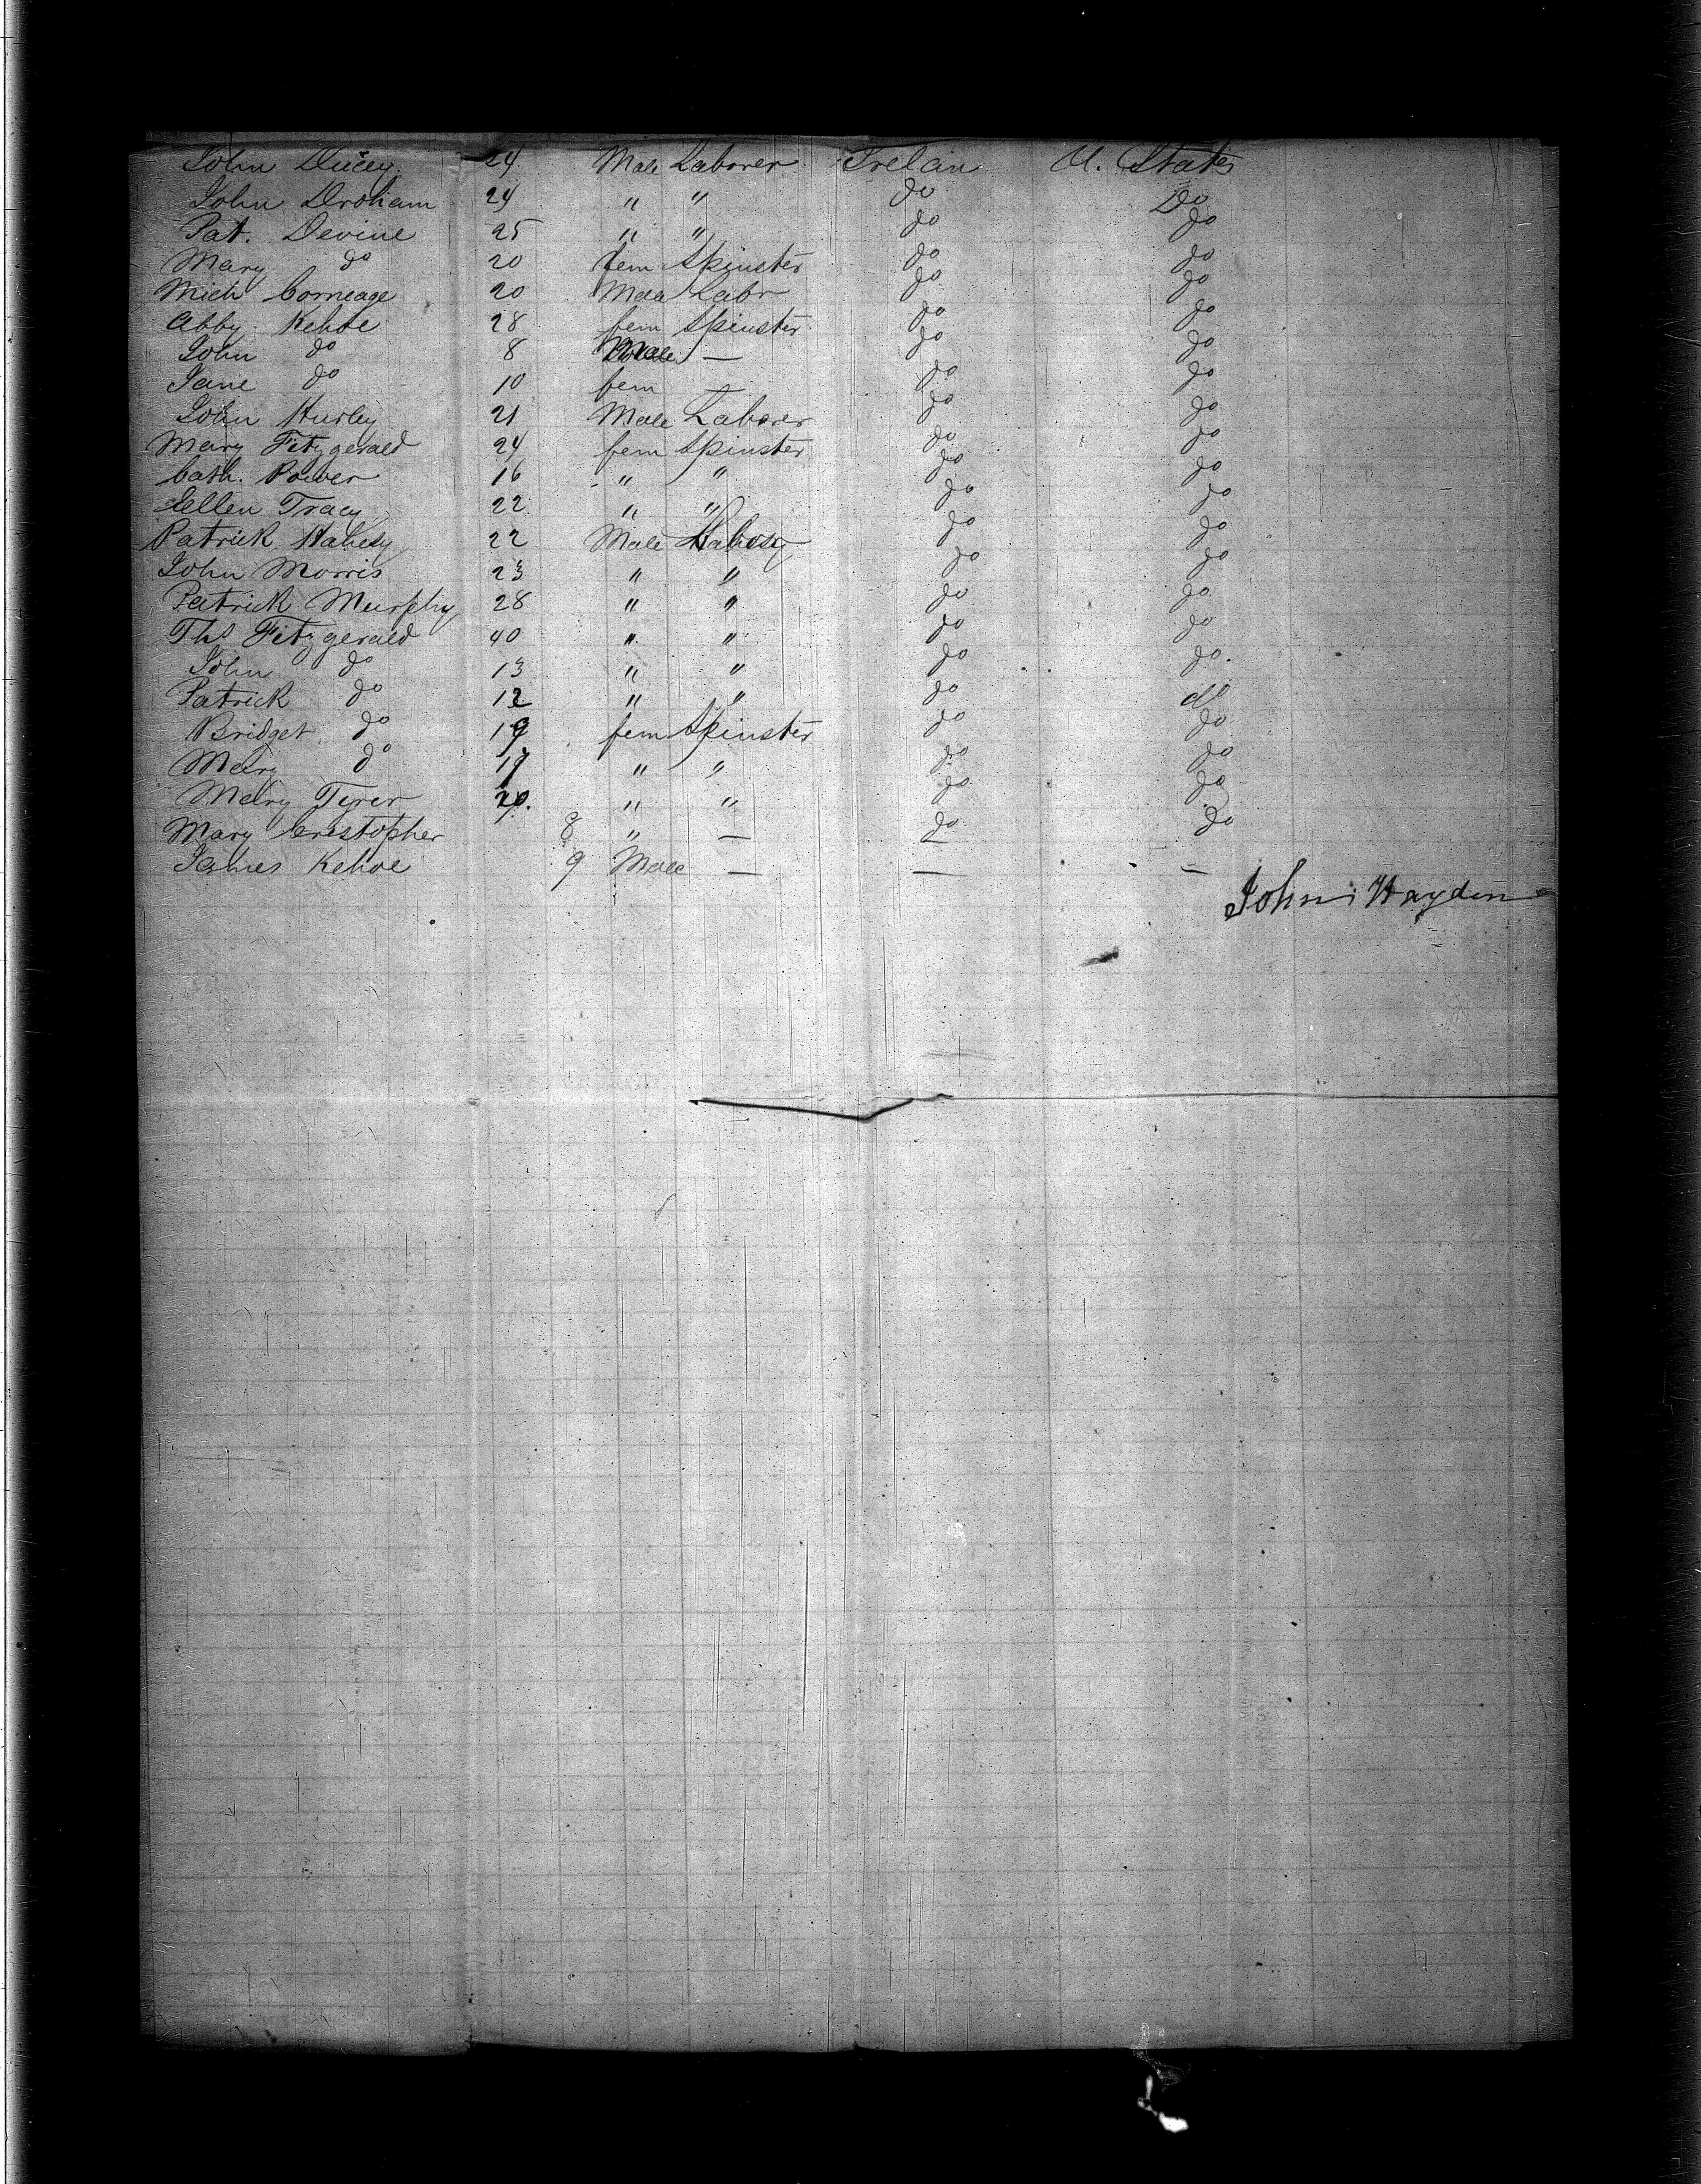 John Ducey 24 Male Laborer Irelan U. States
John Droham 24 " " do Do
Pat. Devine 25 " " do do
Mary do 20 fem Spinster do do
Mich Corneage 20 Male Labr do do
Abby Kehoe 28 fem Spinster do do
John do 8 Male — do do
Jane do 10 fem — do do
John Hurley 21 Male Laborer do do
Mary Fitzgerald 24 fem Spinster do do
Cath. Power 16 " " do do
Ellen Tracy 22 " " do do
Patrick Hahesy 22 Male do do
John Morris 23 " " do do
Patrick Murphy 28 " " do do
Ths Fitzgerald 40 " " do do
John do 13 " " do do.
Patrick do 12 " " do do
Bridget do 19 fem Spinster do do
Mary do 19 " " do do
Mary Tyrer 20. " " do do
Mary Cristopher 8 " — do do
James Kehoe 9 Male — — —
John Hayden